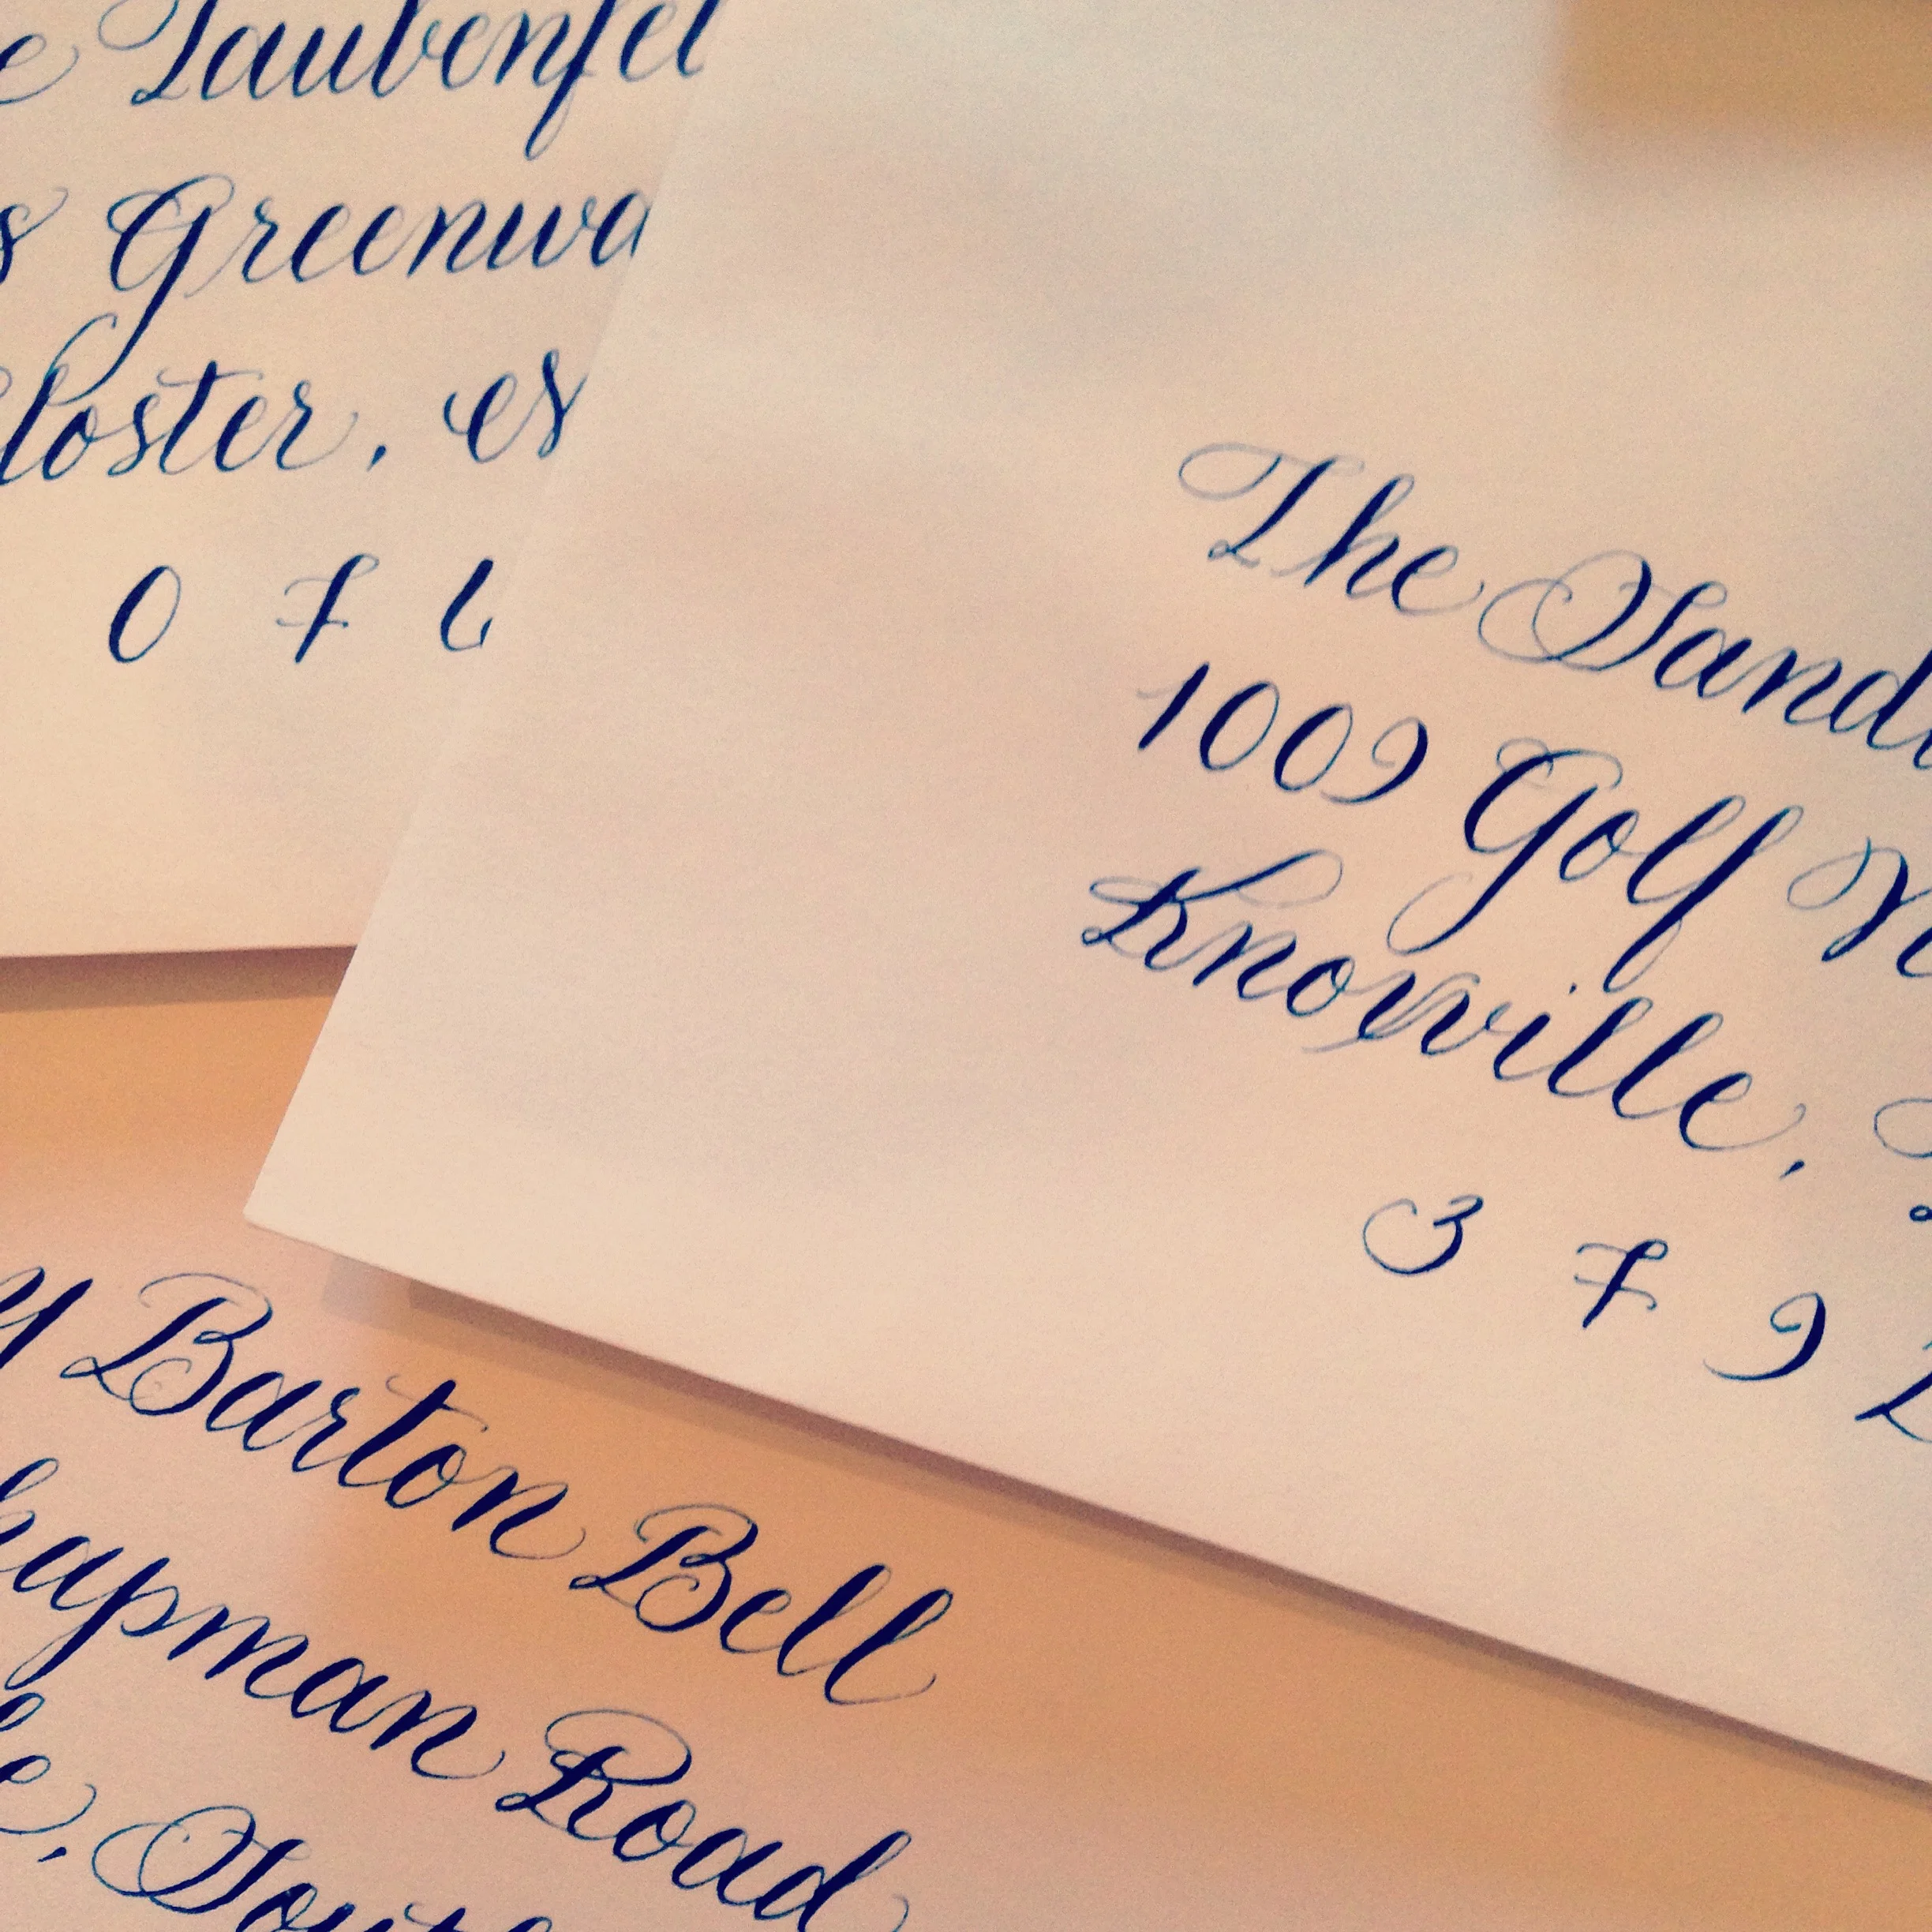 Taubenfel
Greenwa
loster,
0 7 6
The Sand
1009 Golf
Knoxville,
3 7 9 2
y Barton Bell
hapman Road
e, South